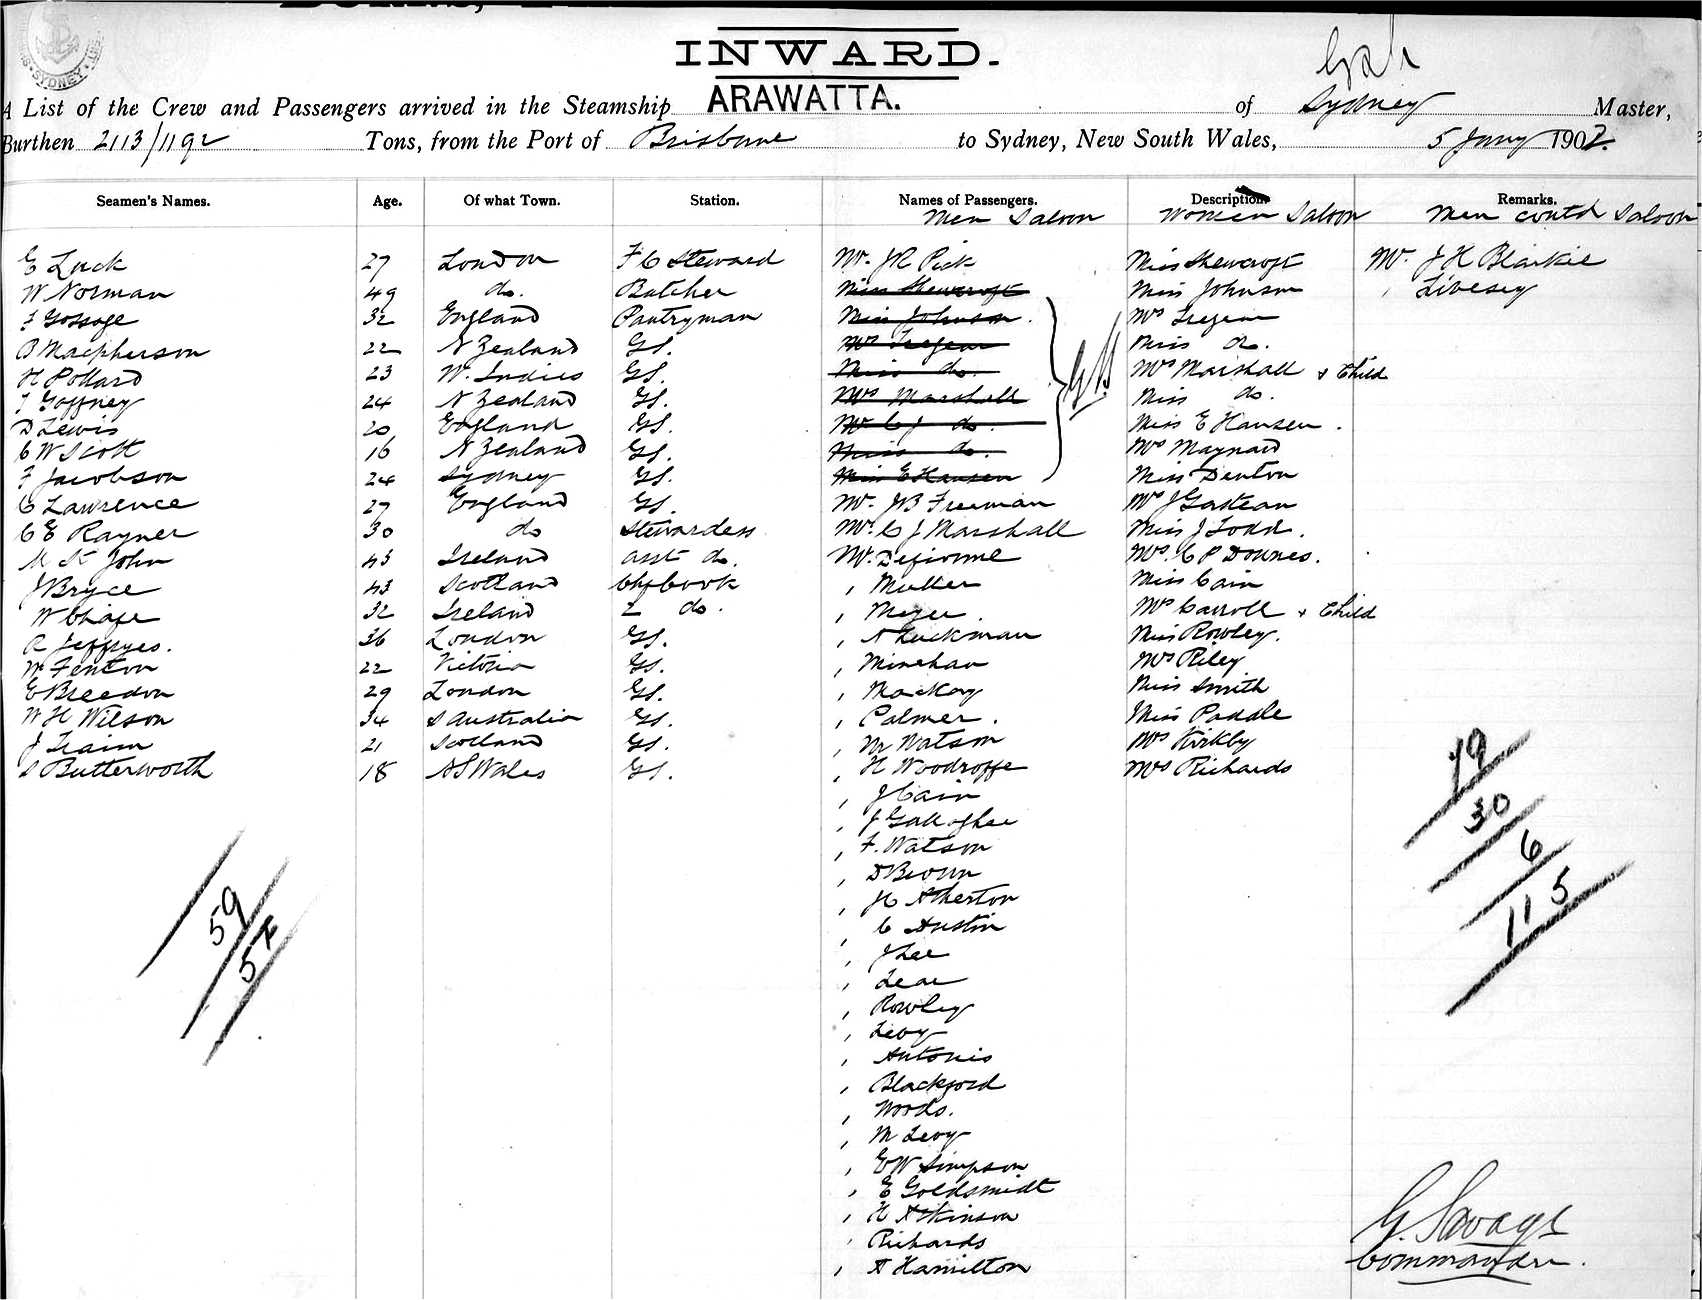 INWARD.
A List of the Crew and Passengers arrived in the Steamship ARAWATTA. of Sydney Master,
Burthen 2113/1192 Tons, from the Port of Brisbane to Sydney, New South Wales, 5 Jany 1902.
Seamen's Names. Age. Of what Town. Station. Names of Passengers. Description. Remarks.
Men Saloon Women Saloon Men contd Saloon
E Luck 27 London F C Steward Mr. J R Pick Miss Shewcroft Mr. J H Blaikie
W Norman 49 do. Butcher Miss Shewcroft Miss Johnson , Livesey
F Gossage 32 England Pantryman Miss Johnson. Mrs Tregear
B Macpherson 22 N Zealand GS. Mrs Tregear Miss do.
H Pollard 23 W. Indies GS. Miss do. Mrs Marshall & Child
T Gaffney 24 N Zealand GS. Mrs Marshall Miss do.
D Lewis 20 England GS. Mr C J do. Miss E Hansen.
C W Scott 16 N Zealand GS. Miss do. Mrs Maynard
F Jacobson 24 Sydney GS. Miss E Hansen Miss Denton
C Lawrence 27 England GS. Mr. J B Freeman Mrs J Gasteau
C E Rayner 30 do Stewardess Mr. C J Marshall Miss J Todd.
M St John 43 Ireland asst do. Mr. Mrs. C P Downes.
J Bryce 43 Scotland Chf Cook , Muller Miss Cain
W Chafe 32 Ireland 2 do. , Meyer. Mrs Carroll & Child
R Jeffryes. 36 London GS. , A Luckman Miss Rowley.
W Fenton 22 Victoria GS. , Minehan Mrs Riley
E Breedon 29 London GS. , Mackay Miss Smith
W H Wilson 34 S Australia GS. , Palmer. Miss Paddle
J Train 21 Scotland GS. , M Watson Mrs Kirkby
S Butterworth 18 N S Wales GS. , H Woodroffe Mrs Richards
, J Cain
, J Gallagher
, F. Watson
, D Brown
, H Atherton
, C Austin
, J Lee
, Lear
, Rowley
, Levy
, Antonis
, Blackford
, Woods.
, M Levy
, E W Simpson
, E Goldsmidt
, H Atkinson
, Richards
, A Hamilton
59
57
79
30
6
115
G. Savage
Commander.